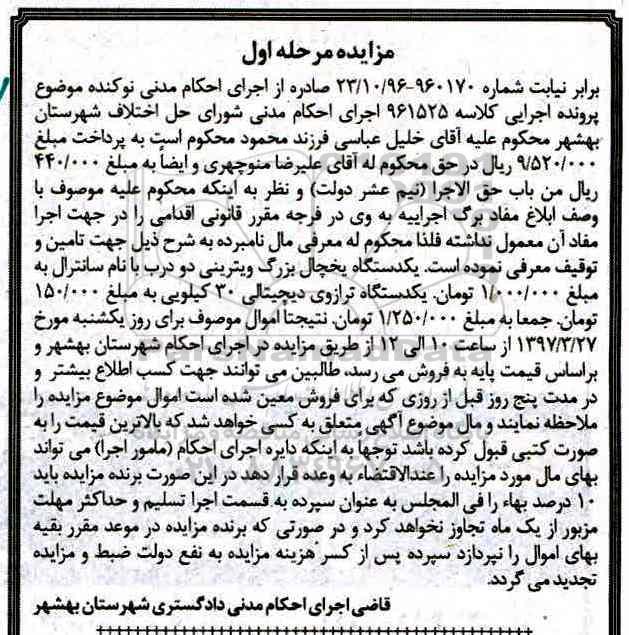 مزایده مرحله اول
برابر نیابت شماره ۹۶۰۱۷۰-۲۳/۱۰/۹۶ صادره از اجرای احکام مدنی نوکنده موضوع
پرونده اجرایی کلاسه ۹۶۱۵۲۵ اجرای احکام مدنی شورای حل اختلاف شهرستان
بهشهر محکوم علیه آقای خلیل عباسی فرزند محمود محکوم است به پرداخت مبلغ
۹/۵۲۰/۰۰۰ ریال در حق محکوم له آقای علیرضا منوچهری و ایضاً به مبلغ ۴۴۰/۰۰۰
ریال من باب حق الاجرا (نیم عشر دولت) و نظر به اینکه محکوم علیه موصوف با
وصف ابلاغ مفاد برگ اجراییه به وی در فرجه مقرر قانونی اقدامی را در جهت اجرا
مفاد آن معمول نداشته فلذا محکوم له معرفی مال نامبرده به شرح ذیل جهت تامین و
توقیف معرفی نموده است. یکدستگاه یخچال بزرگ ویترینی دو درب با نام سانترال به
مبلغ ۱/۰۰۰/۰۰۰ تومان. یکدستگاه ترازوی دیجیتالی ۳۰ کیلویی به مبلغ ۱۵۰/۰۰۰
تومان. جمعا به مبلغ ۱/۲۵۰/۰۰۰ تومان. نتیجتاً اموال موصوف برای روز یکشنبه مورخ
۱۳۹۷/۳/۲۷ از ساعت ۱۰ الی ۱۲ از طریق مزایده در اجرای احکام شهرستان بهشهر و
براساس قیمت پایه به فروش می رسد، طالبین می توانند جهت کسب اطلاع بیشتر و
در مدت پنج روز قبل از روزی که برای فروش معین شده است اموال موضوع مزایده را
ملاحظه نمایند و مال موضوع آگهی متعلق به کسی خواهد شد که بالاترین قیمت را به
صورت کتبی قبول کرده باشد توجها به اینکه دایره اجرای احکام (مامور اجرا) می تواند
بهای مال مورد مزایده را عندالاقتضاء به وعده قرار دهد در این صورت برنده مزایده باید
۱۰ درصد بهاء را فی المجلس به عنوان سپرده به قسمت اجرا تسلیم و حداکثر مهلت
مزبور از یک ماه تجاوز نخواهد کرد و در صورتی که برنده مزایده در موعد مقرر بقیه
بهای اموال را نپردازد سپرده پس از کسر هزینه مزایده به نفع دولت ضبط و مزایده
تجدید می گردد.
قاضی اجرای احکام مدنی دادگستری شهرستان بهشهر